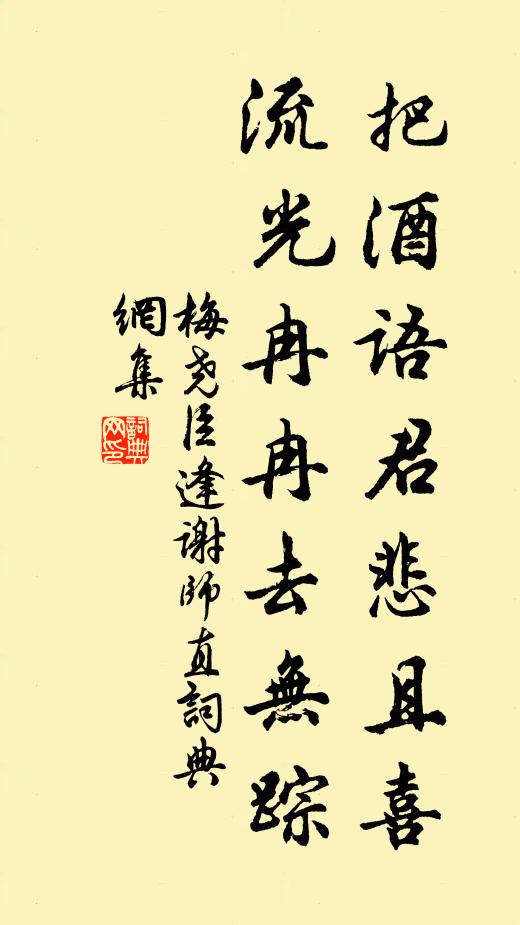 把酒語君悲且喜
流光冉冉去無踪
梅尧臣逢谢師直詞典
網集
詞典
网印